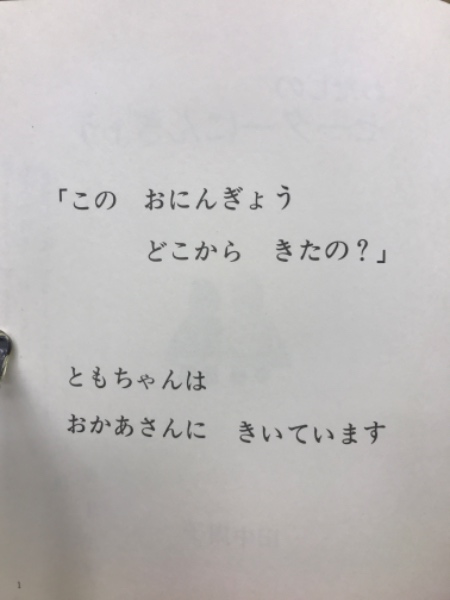 「この　おにんぎょう
どこから　きたの？」
ともちゃんは
おかあさんに　きいています
1